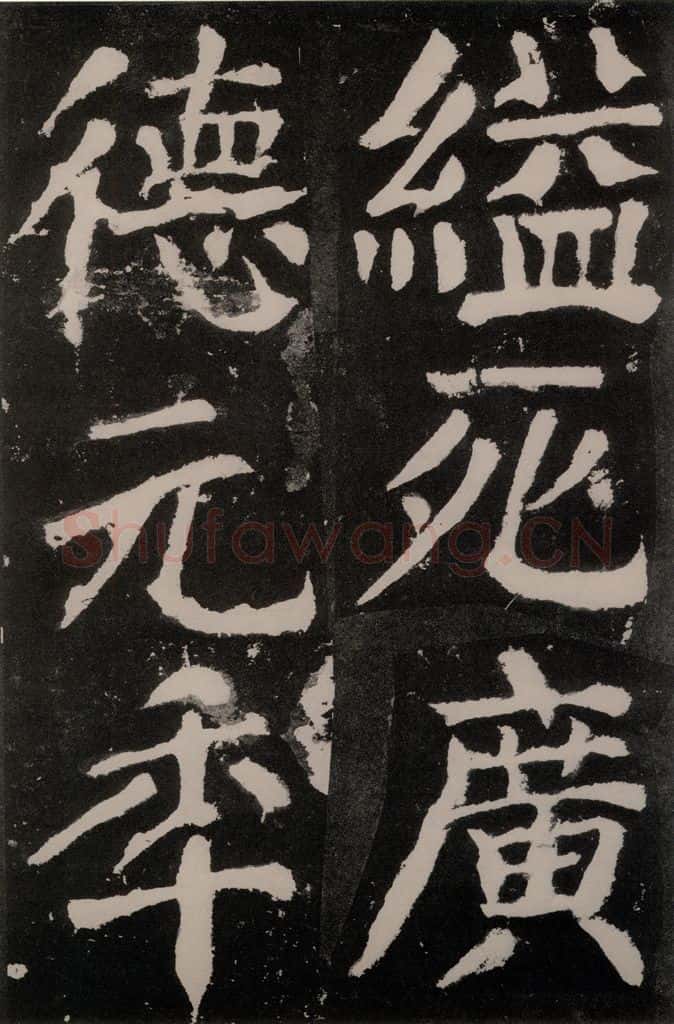 縊死廣
德元年
Shufawang.CN